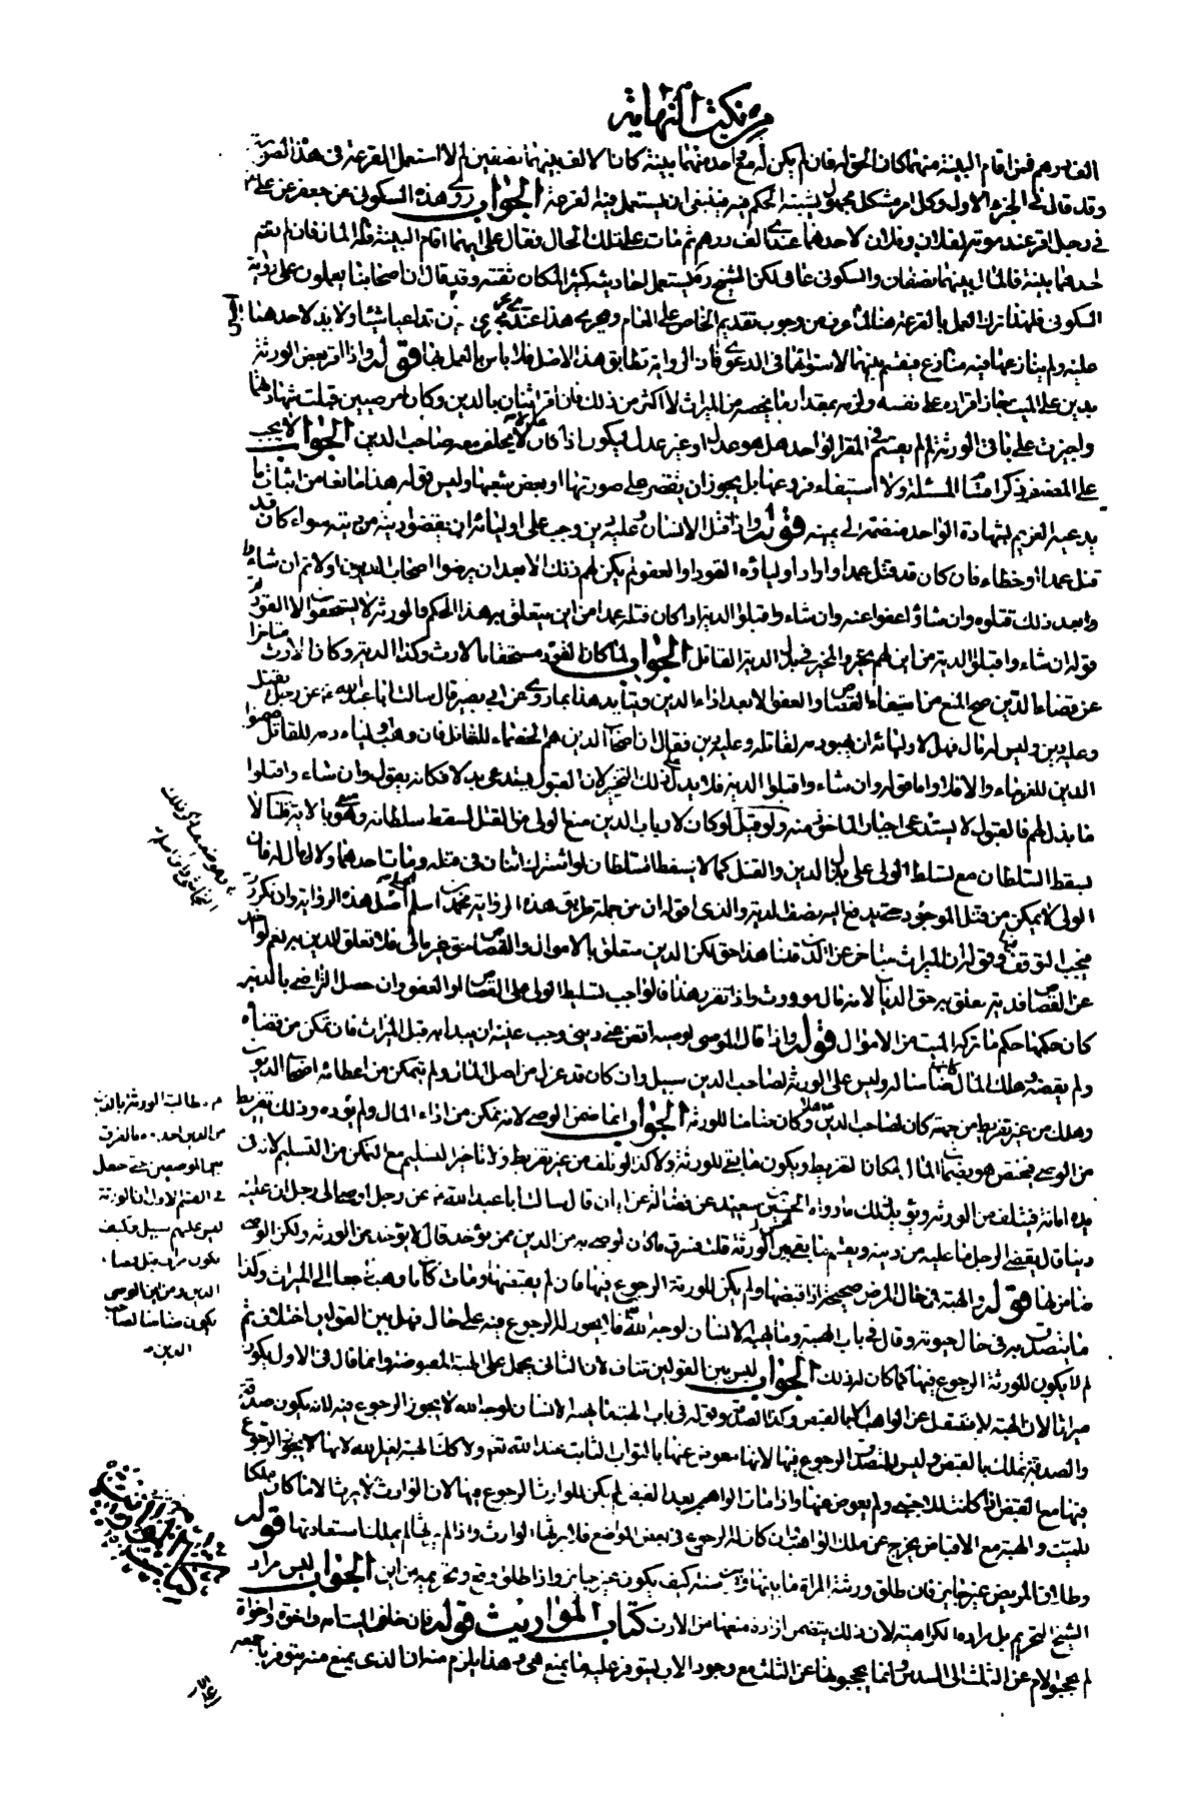 من نكت النهاية
الف درهم فمن اقام البينة منهما كان الحق له فان لم يكن له مع احد منهما بينة كانا الالف بينهما نصفين لم لا استعمل القرعة في هذه الصورة
وقد قال في الجزء الاول وكل امر مشكل مجهول يشتبه الحكم فيه فينبغي ان يستعمل فيه القرعة الجواب روى هذه السكوني عن جعفر عن علي
في رجل اقر عند موته لفلان وفلان لاحدهما عندي الف درهم ثم مات على تلك الحال فقال علي ايهما اقام البينة فله المال فان لم يقم
احدهما بينة فالمال بينهما نصفان والسكوني عامي ولكن الشيخ ره يستعمل احاديثه كثيرا لمكان ثقته وقد قال ان اصحابنا يعملون على رواية
السكوني فلهذا ترك العمل بالقرعة هنا لما عرف من وجوب تقديم الخاص على العام ويجري هذا عنده مجرى تداعيا شيئا ولا يد لاحد هنا
عليه ولم ينازعهما فيه منازع فيقسم بينهما لاستوائهما في الدعوى فاذا الرواية تطابق هذا الاصل فلا باس بالعمل بها قوله واذا اقر بعض الورثة
بدين على الميت جاز اقراره على نفسه ولزمه بمقدار ما يخصه من الميراث لا اكثر من ذلك فان اقر اثنان بالدين وكانا مرضيين قبلت شهادتهما
واجيزت على باقي الورثة لم لم يقسم في المقر الواحد هل هو عدل او غير عدل ليكون اذا كان عدلا يحلف معه صاحب الدين الجواب لا يجب
على المصنف ذكر اقسام المسئلة ولا استيفاء فروعها بل يجوز ان يقتصر على صورتها او بعض شعبها وليس قوله هذا مانعا من اثبات ما
يدعيه الغريم بشهادة الواحد منضمة الى يمينه قوله واذا قتل الانسان وعليه دين وجب على اوليائه ان يقضوا دينه من ديته سواء كان قد
قتل عمدا او خطاء فان كان قد قتل عمدا واراد اولياؤه القود او العفو لم يكن لهم ذلك الا بعد ان يرضوا اصحاب الدين اولا ثم ان شاؤا
وابعد ذلك قتلوه وان شاؤا عفوا عنه وان شاءوا قبلوا الدية اذا كان قتله عمدا من اين يتعلق به هذا الحكم فالورثة لا يستحقون الا القود
قوله ان شاءوا قبلوا الدية من اين لهم يخير والمخير في بذل الدية القاتل الجواب لما كان القود مستحقا بالارث وكذا الدية وكان الارث متاخرا
عن قضاء الدين صح المنع من استيفاء القصاص او العفو الا بعد اداء الدين ويتايد هذا بما روى عن ابي بصير قال سالت ابا عبد الله ع عن رجل يقتل
وعليه دين وليس له مال فهل لاوليائه ان يهبوا دمه لقاتله وعليه دين فقال ان اصحاب الدين هم الخصماء للقاتل فان وهب اولياءه دمه للقاتل ضمنوا
الدين للغرماء والا فلا واما قوله وان شاء واقبلوا الدية فلا يدل على ذلك التخيير لان القبول يستدعي بذلا فكانه يقول وان شاءوا قبلوا
ما بذل لهم فالقبول لا يستدعي اختيار الماخوذ منه ولو قيل لو كان لارباب الدين منع الولي من القتل لسقط سلطانه
لسقط السلطان مع تسلط الولي على بذل الدين والقتل كما لا يسقط السلطان لو اشترك اثنان في قتله ومات احدهما ولا مال له فان
الولي لا يمكن من قتل الموجود حتى يدفع اليه نصف الدية والذي اقوله ان من جملة طريق هذه الرواية محمد بن اسلم اصل هذه الرواية وان تكررت
فيجب التوقف فيها وقوله ان الميراث متاخر عن الدين قلنا هذا حق لكن الدين متعلق بالاموال والقصاص حق غير مالي فلا تعلق للدين به نعم لو اخذ
عن القصاص دية تعلق به حق الديان لانه مال موروث واذا تقرر هذا فالواجب تسليط الولي على القصاص او العفو وان حصل التراضي بالدية
كان حكمها حكم ما تركه الميت من الاموال قوله واذا قال الموصي لوصيه اقض عني ديني وجب عليه ان يبدا به قبل الميراث فان تمكن من قضاه
ولم يقضه وهلك المال كان ضامنا له وليس على الورثة لصاحب الدين سبيل وان كان قد عزل من اصل المال ولم يتمكن من اعطائه اصحاب الديون
وهلك من غير تفريط من جهته كان لصاحب الدين مطالبة وكان ضامنا للورثة الجواب انما ضمن الوصي لانه تمكن من اداء المال ولم يؤده وذلك تفريط
من الوصي فيختص هو بضمان المال لمكان التفريط ويكون ما بقي للورثة ولا كذا لو تلف من غير تفريط ولا تاخير التسليم مع التمكن من التسليم لانه في
يده امانة فيتلف من الورثة ويؤيد ذلك ما رواه الحسين بن سعيد عن فضالة عن ابان قال سالت ابا عبد الله ع عن رجل اوصى الى رجل ان عليه
دينا قال يقضي الرجل ما عليه من دينه ويقسم ما بقي بين الورثة قلت فسرق ما كان اوصى به من الدين ممن يؤخذ قال لا يؤخذ من الورثة ولكن الوصي
ضامن لها قوله والهبة في حال المرض صحيحة اذا قبضها ولم يكن للورثة الرجوع فيها فان لم يقبضها ومات كان ما وهب راجعا الى الميراث وكذا
ما يتصدق به في حال حيوته وقال في باب الهبة وما يهبه الانسان لوجه الله فلا يجوز له الرجوع فيه على حال فهل بين القولين اختلاف ثم
لم لا يكون للورثة الرجوع فيها كما كان له ذلك الجواب ليس بين القولين تناف لان الثاني يحمل على الهبة المقبوضة وانما قال في الاول يكون
ميراثا لان الهبة لا تنتقل عن الواهب الا بالقبض وكذا الصدقة وقوله في باب الهبة ما يهبه الانسان لوجه الله لا يجوز الرجوع فيه لانه يكون صدقة
والصدقة تملك بالقبض وليس للمتصدق الرجوع فيها لانها معوض عنها بالثواب الثابت عند الله نعم ولا كذا الهبة لغير الله لانها لا يجوز الرجوع
فيها مع القبض اذا كانت للاجنبي ولم يعوض عنها واذا مات الواهب بعد القبض لم يكن للوارث الرجوع فيها لان الوارث لا يرث الا ما كان ملكا
للميت والهبة مع الاقباض يخرج عن ملك الواهب وان كان له الرجوع في بعض المواضع فلا يرثها الوارث واذا لم يرثها لم يملك استعادتها قوله
وطلاق المريض غير جايز فان طلق ورثته المراة ما بينها وبين سنة كيف يكون غير جايز واذا طلق وقع وتحريمه من اين الجواب ليس مراد
الشيخ التحريم بل مراده الكراهية لان ذلك يتضمن ارادة منعها من الارث كتاب المواريث قوله فان خلف الميت امه واخوة واخواة
لم يحجبوا الام عن الثلث الى السدس وانما يحجبونها عن الثلث مع وجود الاب ليتوفر عليه ما يمنع هي وهذا يلزم منه ان الذي يمنع منه يتوفر باجمعه
م. طالبت الورثة بالدين
من الدين احد .. ما الفرق
بين الموضعين حتى حصل
في القسم الاول ان الورثة
ليس عليهم سبيل وكيف
يكون ميراث قبل قضاء
الدين ومن اين الوصي
يكون ضامنا لصاحب
الدين